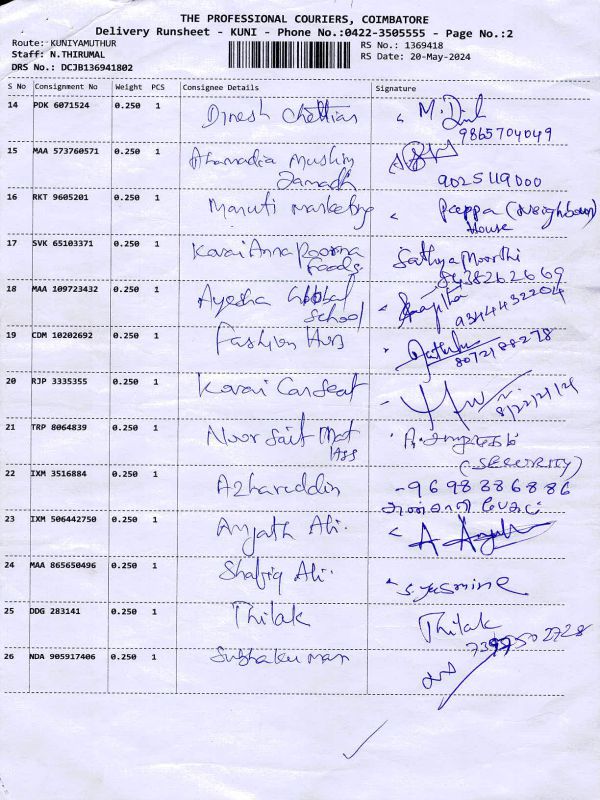 THE PROFESSIONAL COURIERS, COIMBATORE
Delivery Runsheet - KUNI - Phone No.:0422-3505555 - Page No.:2
Route: KUNIYAMUTHUR
RS No.: 1369418
Staff: N.THIRUMAL
RS Date: 20-May-2024
DRS No.: DCJB136941802
S No Consignment No Weight PCS Consignee Details Signature
14 PDK 6071524 0.250 1 Dinesh Chettiar M.
9865704049
15 MAA 573760571 0.250 1 Ahamadia Muslim
Jamadh 9025119000
16 RKT 9605201 0.250 1 Maruti marketing Pappa (Neighbour)
House
17 SVK 65103371 0.250 1 Kovai Anna Poorna Sathya Moorthi
Foods 8438262669
18 MAA 109723432 0.250 1 Ayesha Global
School 9344432204
19 CDM 10202692 0.250 1 Fashion Hub
8072188278
20 RJP 3335355 0.250 1 Kovai Car Seat
21 TRP 8064839 0.250 1 Noor Sait Mat
Ass (SECURITY)
22 IXM 3516884 0.250 1 Azharuddin - 9698886886
23 IXM 506442750 0.250 1 Anjath Ali. A
24 MAA 865650496 0.250 1 Shafiq Ali. S. yasmine
25 DDG 283141 0.250 1 Thilak Thilak
26 NDA 905917406 0.250 1 Subhakumar